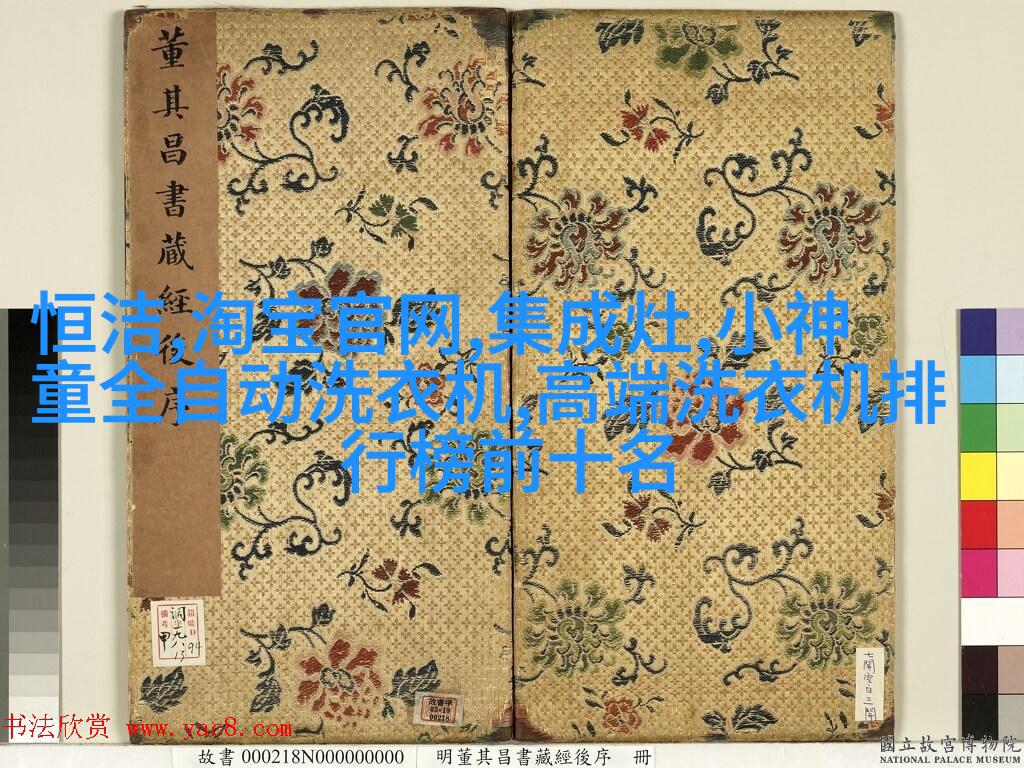 董其昌書藏經後序
恒洁,淘宝官网,集成灶,小神
童全自动洗衣机,高端洗衣机排
行榜前十名
故書甲
03-10
00218
七開空白三開
书法欣赏 www.yac8.com
故書 000218N000000000
明董其昌書藏經後序 冊
國立故宮博物院
NATIONAL PALACE MUSEUM